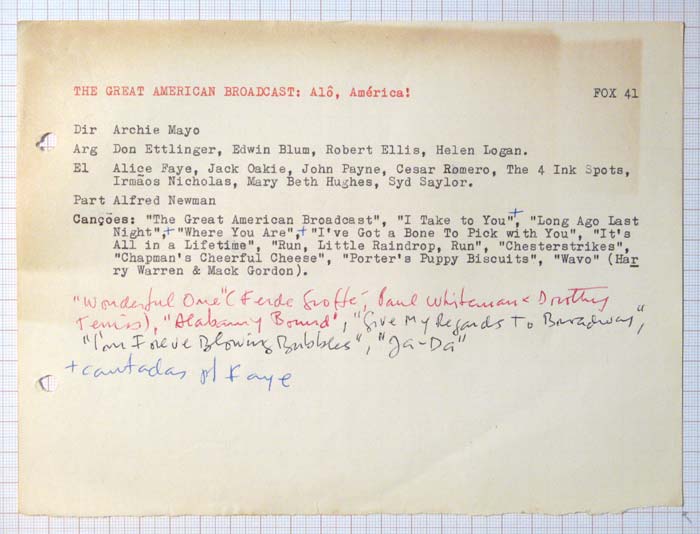 THE GREAT AMERICAN BROADCAST: Alô, América! FOX 41
Dir Archie Mayo
Arg Don Ettlinger, Edwin Blum, Robert Ellis, Helen Logan.
El Alice Faye, Jack Oakie, John Payne, Cesar Romero, The 4 Ink Spots,
Irmãos Nicholas, Mary Beth Hughes, Syd Saylor.
Part Alfred Newman
Canções: "The Great American Broadcast", "I Take to You"+, "Long Ago Last
Night",+ "Where You Are",+ "I've Got a Bone To Pick with You", "It's
All in a Lifetime", "Run, Little Raindrop, Run", "Chesterstrikes",
"Chapman's Cheerful Cheese", "Porter's Puppy Biscuits", "Wavo" (Har
ry Warren & Mack Gordon).
"Wonderful One" (Ferde Groffé, Paul Whiteman & Dorothy
"Alabamy Bound", "Give My Regards To Broadway",
"I'm Foreve Blowing Bubbles", "Ja-Da"
+ cantadas p/ Faye